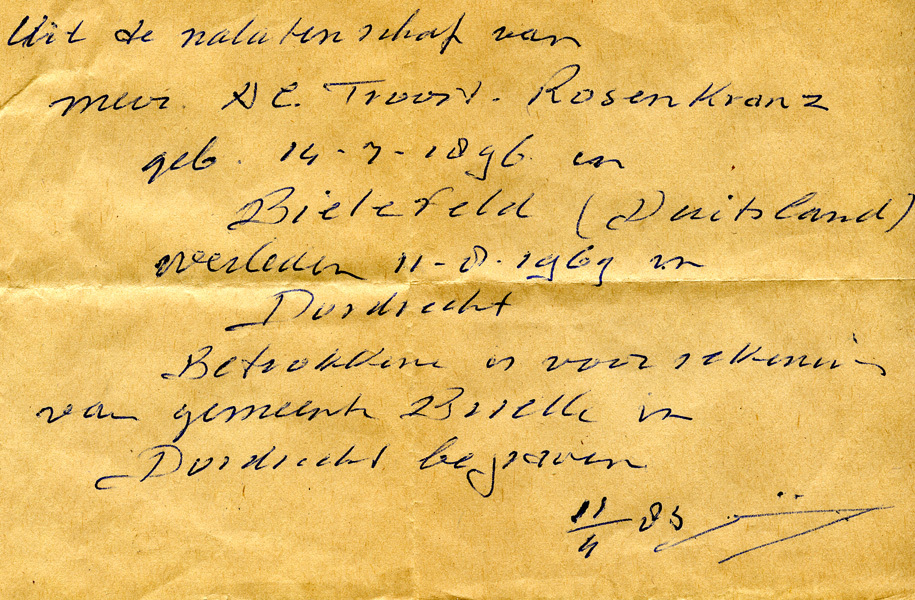 Uit de nalatenschap van
mevr. A C. Troost - Rosenkranz
geb. 14 - 7 - 1896 in
Bielefeld (Duitsland)
overleden 11 - 8 - 1969 in
Dordrecht
Betrokkene is voor rekening
van gemeente Brielle in
Dordrecht begraven
11/4 83